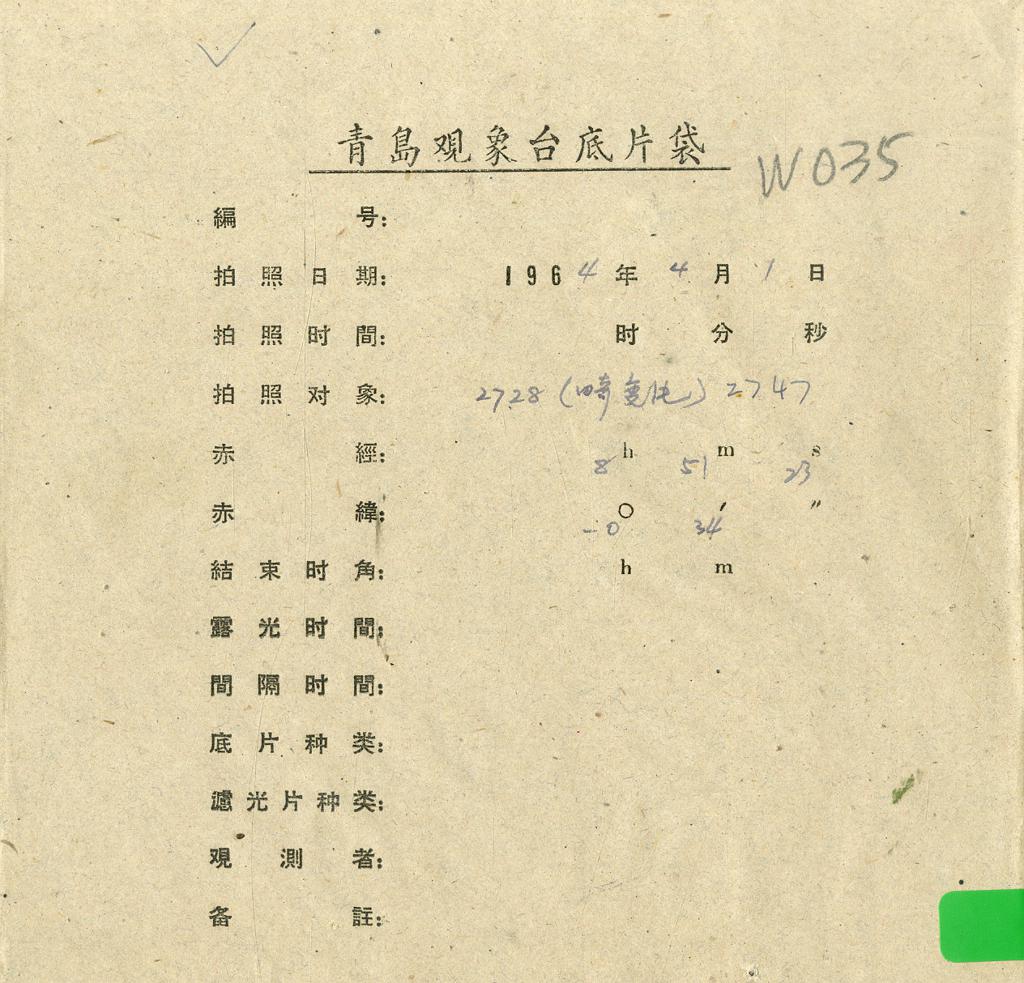 青島观象台底片袋
W035
編号:
拍照日期: 1964年4月1日
拍照时間: 时分秒
拍照对象: 2728 ( ) 2747
赤經: 8h 51m 23s
赤緯: -0° 34′ ″
結束时角: h m
露光时間:
間隔时間:
底片种类:
濾光片种类:
观測者:
备註: